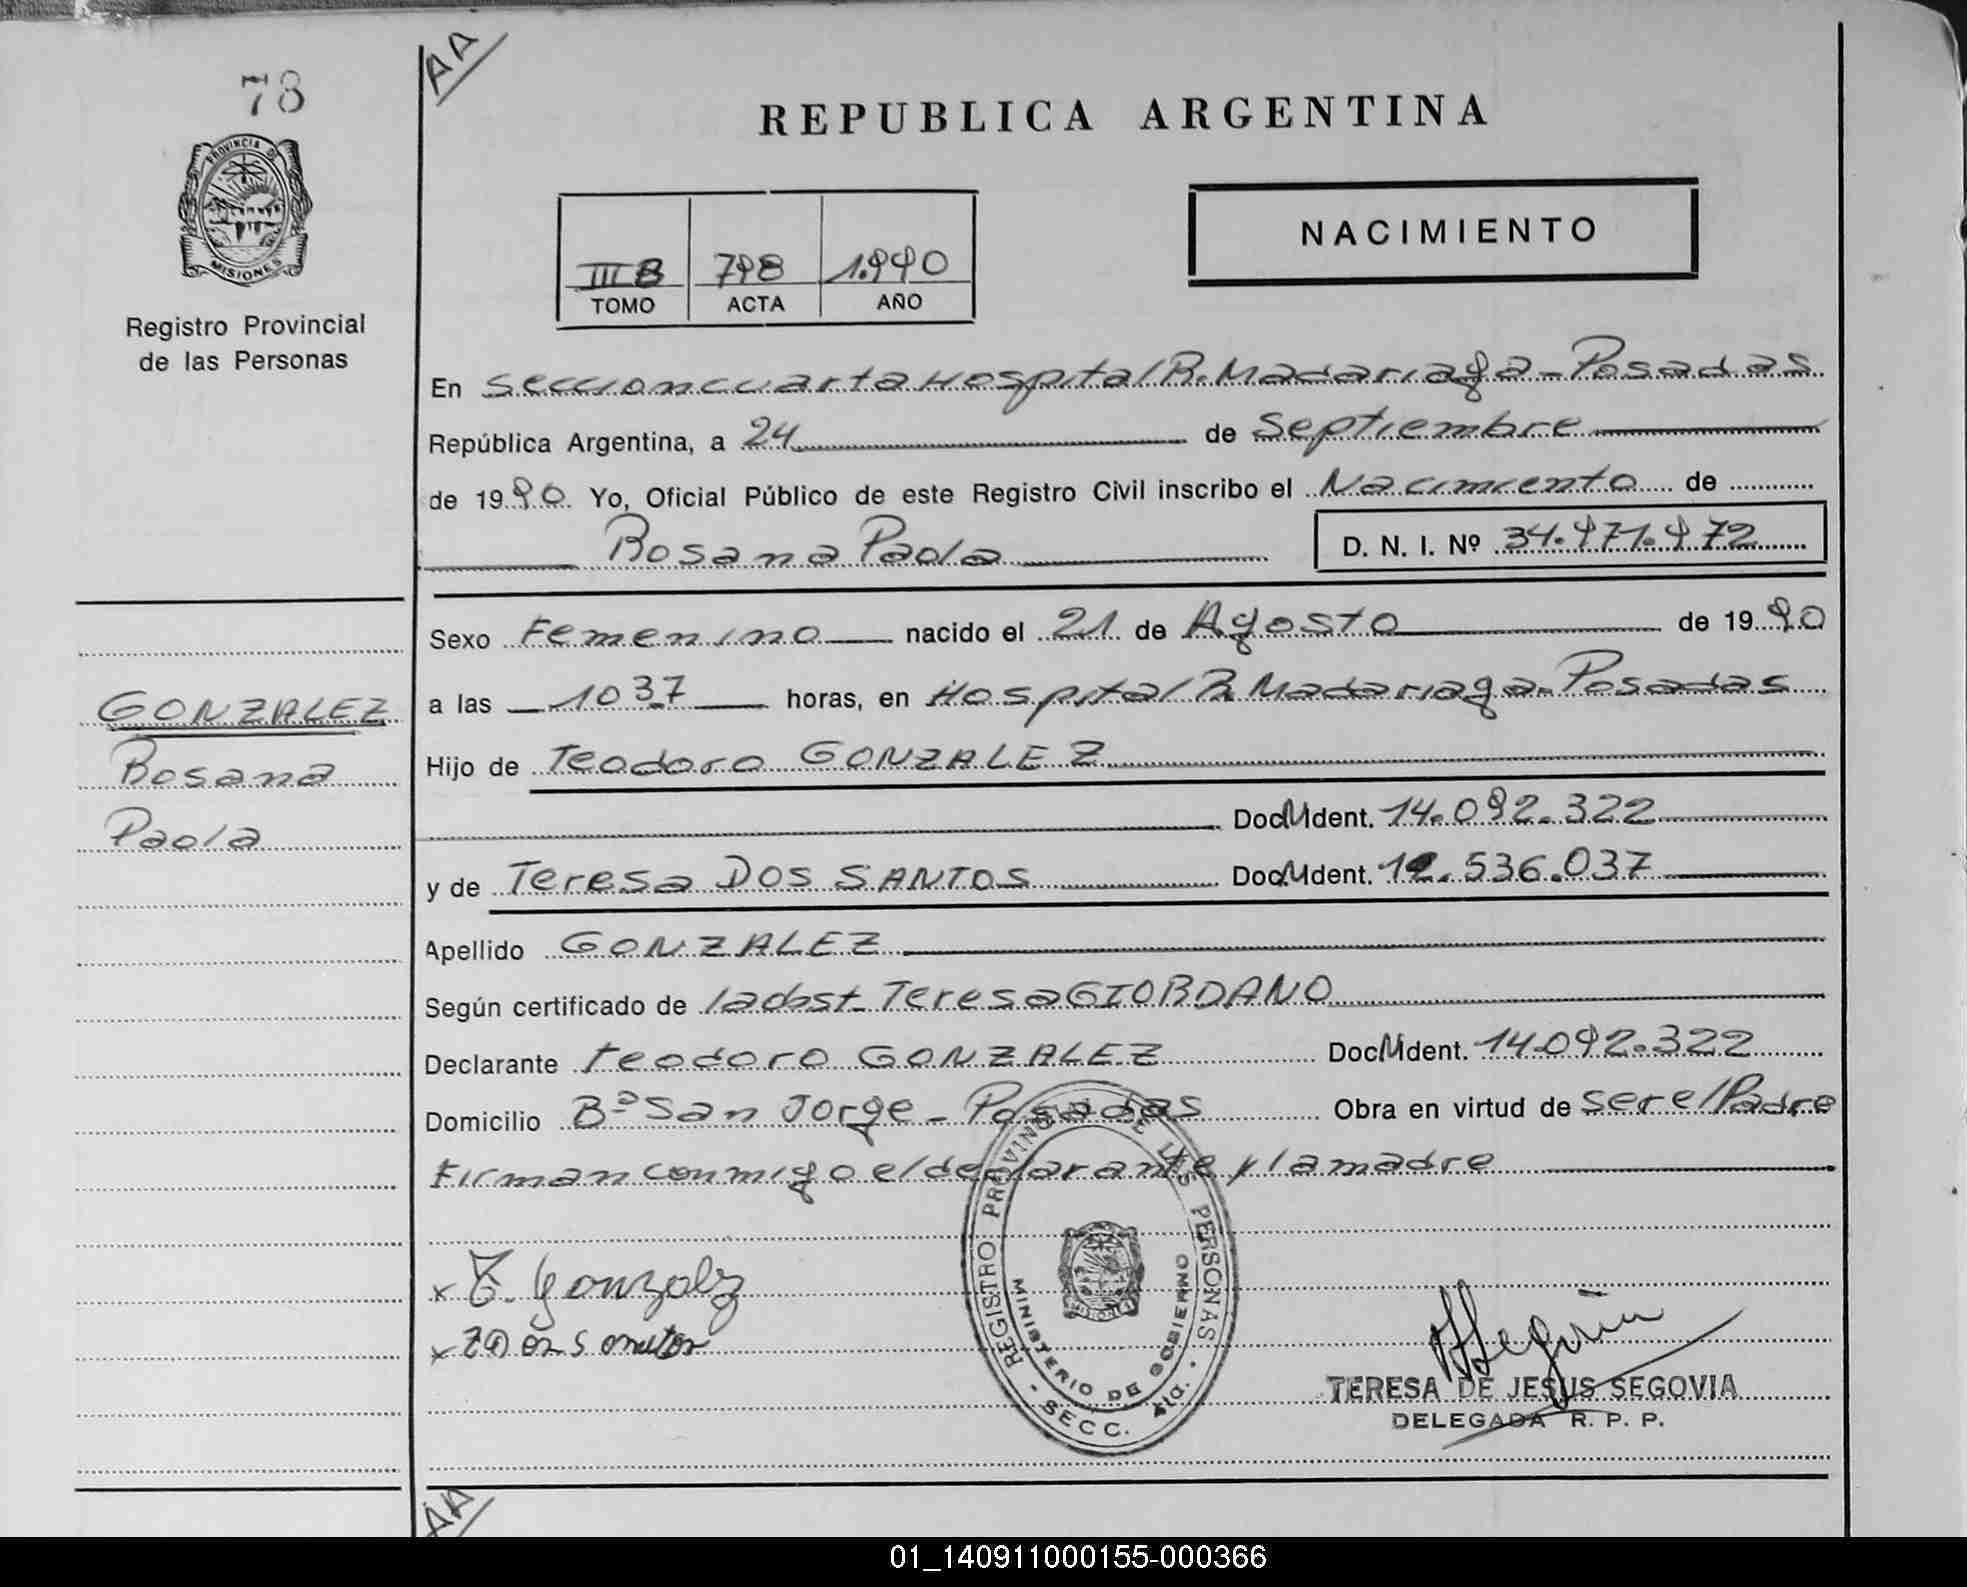 78
AA
REPUBLICA ARGENTINA
PROVINCIA DE
MISIONES
Registro Provincial
de las Personas
NACIMIENTO
III B 798 1.990
TOMO ACTA AÑO
En Seccion cuarta Hospital R. Madariaga - Posadas
República Argentina, a 24 de Septiembre
de 1990 Yo, Oficial Público de este Registro Civil inscribo el Nacimiento de
Rosana Paola D. N. I. Nº 34.971.972
Sexo Femenino nacido el 21 de Agosto de 1990
a las 1037 horas, en Hospital R. Madariaga - Posadas
GONZALEZ
Rosana
Paola
Hijo de Teodoro GONZALEZ
Doc. M Ident. 14.092.322
y de Teresa DOS SANTOS Doc. M Ident. 12.536.037
Apellido GONZALEZ
Según certificado de la obst. Teresa GIORDANO
Declarante Teodoro GONZALEZ Doc. M Ident. 14.092.322
Domicilio Bº San Jorge - Posadas Obra en virtud de ser el Padre
Firman conmigo el declarante y la madre
x T. Gonzalez
x
REGISTRO PROVINCIAL DE LAS PERSONAS
MINISTERIO DE GOBIERNO
SECC. 4ta.
TERESA DE JESUS SEGOVIA
DELEGADA R. P. P.
AA
01_140911000155-000366